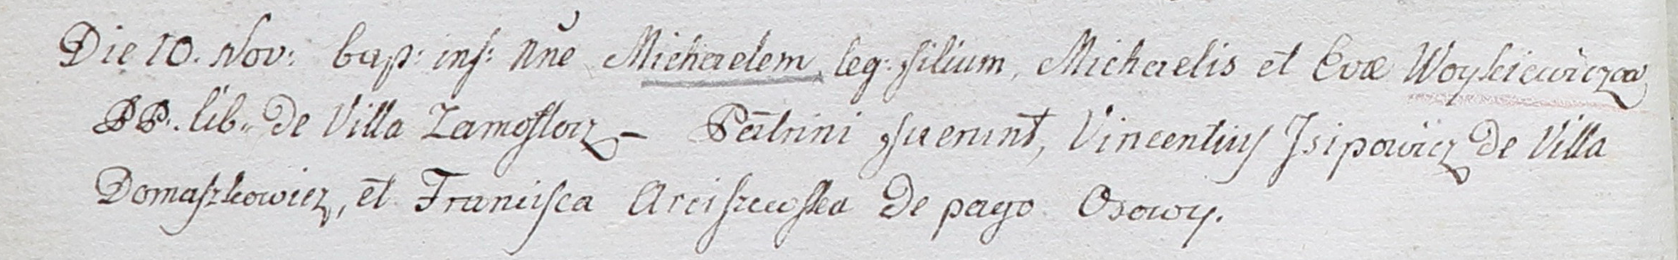 Die 10. Nov: bap: inf: nñe Michaelem leg: filium, Michaelis et Evæ Woykiewiczow
PP. lib. de Villa Zamostocz – Patrini fuerunt, Vincentius Jsipowicz de Villa
Domaszkowicz, et Francisca Arciszewska de pago Osowy.